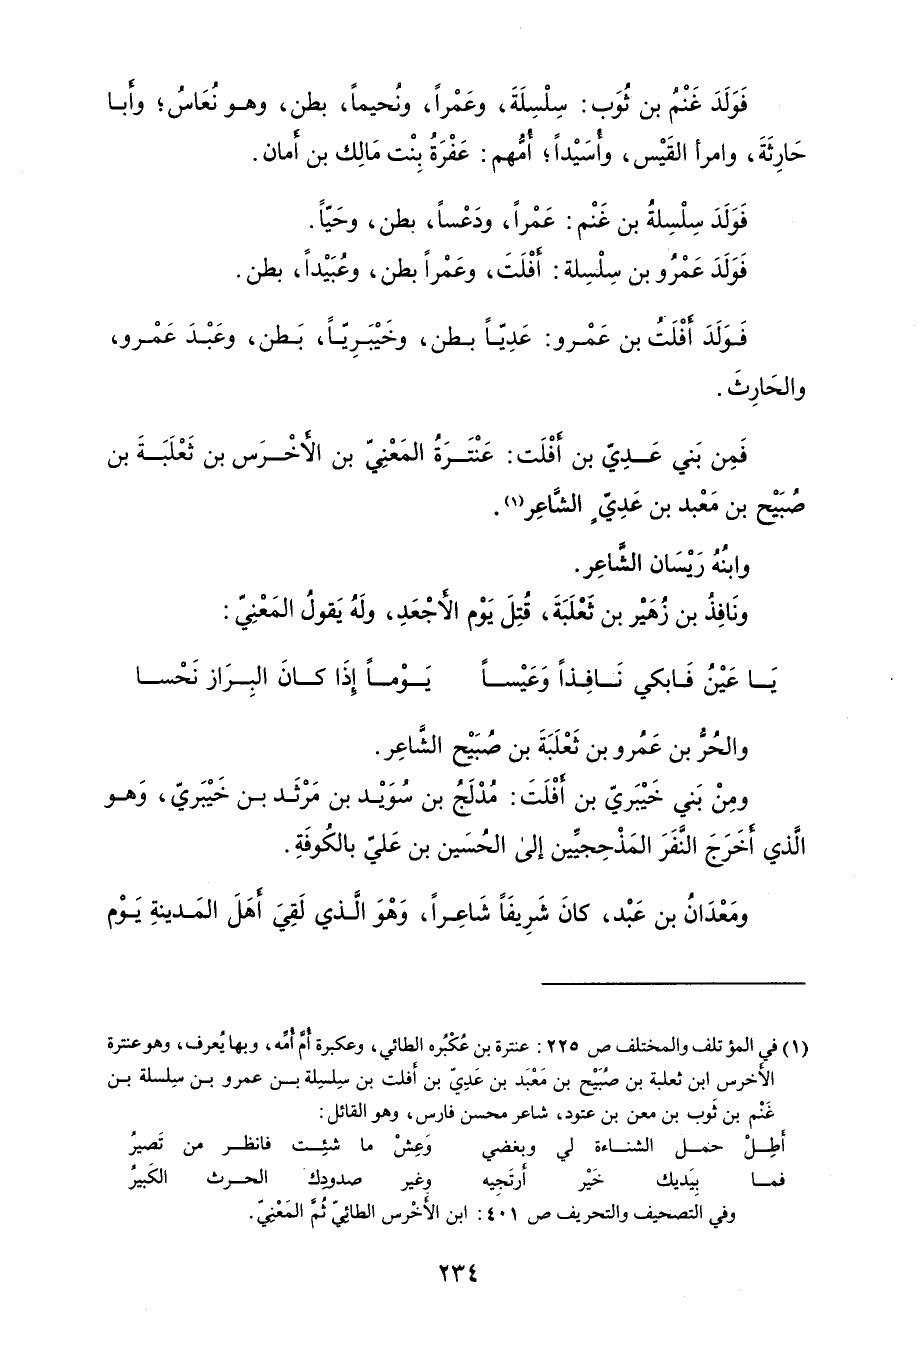 فَوَلَدَ غَنْمُ بن ثُوَب: سِلْسِلَةَ، وعَمْراً، ونُحيماً، بطن، وهـو نُعَاسُ؛ وأَبـا
حَارِثَةَ، وامرأ القَيْس، وأُسَيْداً؛ أُمُّهم: عَفْرَةُ بِنْت مَالِك بن أَمان.
فَوَلَدَ سِلْسِلةُ بن غَنْم: عَمْراً، ودَعْساً، بطن، وحَيّاً.
فَوَلَدَ عَمْرُو بن سِلْسِلة: أَفْلَتَ، وعَمْراً بطن، وعُبَيْداً، بطن.
فَـولَدَ أَفْلَتُ بن عَمْـرو: عَدِيّـاً بـطن، وخَيْبَـرِيّـاً، بَـطن، وعَبْـدَ عَمْـرو،
والحَارِثَ.
فَمِن بَني عَـدِيّ بن أَفْلَت: عَنْتَـرَةُ المَعْنِيّ بن الأَخْـرَس بن ثَعْلَبَـةَ بن
صُبَيْح بن مَعْبد بن عَدِيٍّ الشَّاعِر(١).
وابنُهُ رَيْسَان الشَّاعِر.
ونَافِذُ بن زُهَيْر بن ثَعْلَبَةَ، قُتِلَ يَوْم الأَجْعَدِ، ولَهُ يَقولُ المَعْنِيّ:
يَـا عَيْنُ فَـابكي نَـافِـذاً وَعَيْسـاً يَـوْمـاً إِذَا كـانَ البِـرَاز نَحْسـا
والحُرُّ بن عَمْرو بن ثَعْلَبَةَ بن صُبَيْح الشَّاعِر.
ومِنْ بَني خَيْبَريّ بن أَفْلَتَ: مُدْلَجُ بن سُوَيْـد بن مَرْثَـد بـن خَيْبَريّ، وَهـو
الَّذي أَخَرَجَ النَّفَرَ المَذْحِجيِّين إلىٰ الحُسَين بن عَليّ بالكُوفَةِ.
ومَعْدَانُ بن عَبْد، كانَ شَرِيفَاً شَاعِـراً، وَهْوَ الَّـذي لَقِيَ أَهَلَ المَـدينةِ يَـوْم
(١) في المؤتلف والمختلف ص ٢٢٥: عنترة بن عُكْبُره الطائي، وعكبرة أُمَّ أُمِّه، وبها يُعرف، وهو عنترة
الأخرس ابن ثعلبة بن صُبَيْح بن مَعْبَد بن عَدِيّ بن أَفلت بن سِلْسِلة بـن عمرو بـن سِلسلة بـن
غَنْم بن ثَوب بن معن بن عتود، شاعر محسن فارس، وهو القائل:
أَطِـلْ حمـل الشنـاءة لي وبغضي وَعِشْ ما شئـت فانظـر من تَصيرُ
فمـا بِيَديك خَيْر أَرتَجِيه وغير صدودِك الحـرث الكَبيرُ
وفي التصحيف والتحريف ص ٤٠١: ابن الأخْرس الطائِيّ ثُمَّ المَعْنِيّ.
٢٣٤